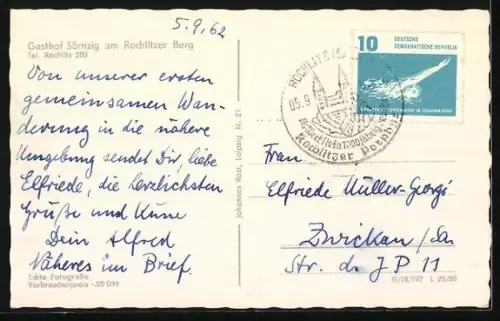 5.9.62
Gasthof Sörnzig am Rochlitzer Berg
Tel. Rochlitz 260
Von unserer ersten
gemeinsamen Wan-
derung in die nähere
Umgebung sendet Dir, liebe
Elfriede, die herzlichsten
Grüße und Küsse
Dein Alfred
Näheres im Brief.
Echte Fotografie
Verbraucherpreis -.20 DM
Johannes Rost, Leipzig N. 21
ROCHLITZ (SA
05.9
Rochlitzer Porphyr
10 DEUTSCHE
DEMOKRATISCHE REPUBLIK
Frau
Elfriede Müller-Georgi
Zwickau/Sa
Str. dr JP 11
III/18/197 L 25/60